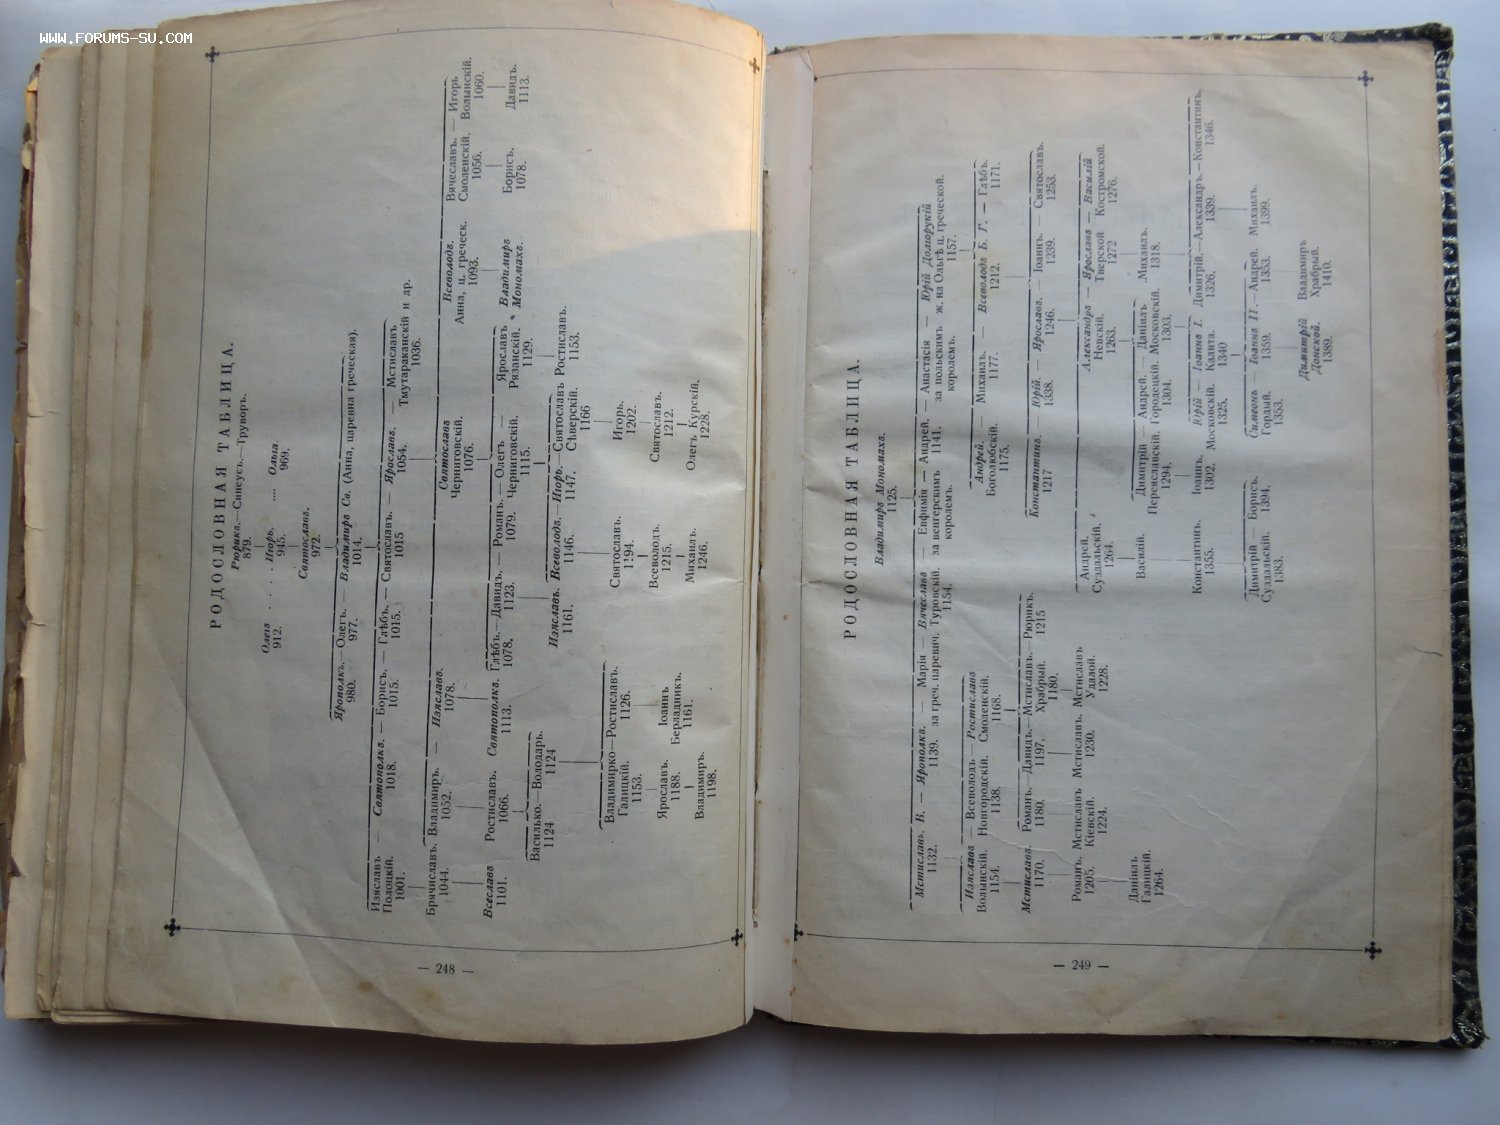 WWW.FORUMS-SU.COM
РОДОСЛОВНАЯ ТАБЛИЦА.
Рюрикъ.—Синеусъ.—Труворъ.
879.
Олегъ . . . . . Игорь. .... Ольга.
912. 945. 969.
Святославъ.
972.
Ярополкъ.—Олегъ. — Владимиръ Св. (Анна, царевна греческая).
980. 977. 1014.
Изяславъ Святополкъ. — Борисъ. — Глѣбъ. — Святославъ. — Ярославъ. — Мстиславъ
Полоцкій. 1018. 1015. 1015. 1015 1054. Тмутараканскій и др.
1001. 1036.
Брячиславъ. Владимиръ. — Изяславъ. Святославъ Всеволодъ. Вячеславъ. — Игорь
1044. 1052. 1078. Черниговскій. Анна, ц. греческ. Смоленскій. Волынскій.
1076. 1093. 1056. 1060.
Всеславъ Ростиславъ. Святополкъ. Глѣбъ.—Давидъ. — Романъ. — Олегъ — Ярославъ Владимиръ Борисъ. Давидъ.
1101. 1066. 1113. 1078. 1123. 1079. Черниговскій. Рязанскій. Мономахъ. 1078. 1113.
1115. 1129.
Василько.—Володарь. Изяславъ. Всеволодъ.—Игорь.—Святославъ Ростиславъ.
1124 1124 1161. 1146. 1147. Сѣверскій. 1153.
1166
Владимирко—Ростиславъ. Святославъ. Игорь.
Галицкій. 1126. 1194. 1202.
1153.
Ярославъ. Іоаннъ Всеволодъ. Святославъ.
1188. Берладникъ. 1215. 1212.
1161.
Владимиръ. Михаилъ. Олегъ Курскій.
1198. 1246. 1228.
— 248 —
РОДОСЛОВНАЯ ТАБЛИЦА.
Владимиръ Мономахъ.
1125.
Мстиславъ. В. — Ярополкъ. — Марія — Вячеславъ — Евфимія — Андрей. — Анастасія — Юрій Долгорукій
1132. 1139. за греч. царевич. Туровскій. за венгерскимъ 1141. за польскимъ ж. на Ольгѣ ц. греческой.
1154. королемъ. королемъ. 1157.
Изяславъ — Всеволодъ — Ростиславъ Андрей. Михаилъ. — Всеволодъ Б. Г. — Глѣбъ.
Волынскій. Новгородскій. Смоленскій. Боголюбскій — 1177. 1212. 1171.
1154. 1138. 1168. 1175.
Мстиславъ. Романъ.—Давидъ.—Мстиславъ.—Рюрикъ. Константинъ. — Юрій. — Ярославъ. — Іоаннъ. — Святославъ.
1170. 1180. 1197. Храбрый. 1215 1217 1338. 1246. 1239. 1253.
1180.
Романъ. Мстиславъ Мстиславъ. Мстиславъ Андрей. Александръ — Ярославъ — Василій
1205. Кіевскій. 1230. Удалой. Суздальскій. Невскій. Тверской Костромской.
1224. 1228. 1264. 1263. 1272 1276.
Даніилъ Василій. Димитрій — Андрей. — Даніилъ Михаилъ.
Галицкій. Переяславскій. Городецкій. Московскій. 1318.
1264. 1294. 1304. 1303.
Константинъ. Іоаннъ. Юрій — Іоаннъ I. Димитрій.—Александръ.—Константинъ.
1355. 1302. Московскій. Калита. 1326. 1339. 1346.
1325. 1340
Димитрій — Борисъ. Симеонъ — Іоаннъ II.—Андрей. Михаилъ.
Суздальскій. 1394. Гордый. 1359. 1353. 1399.
1383. 1353.
Димитрій Владимиръ
Донской. Храбрый.
1389. 1410.
— 249 —